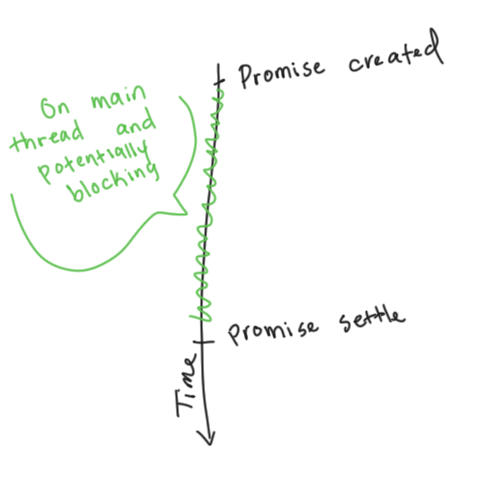 Promise created
On main
thread and
potentially
blocking
Promise settle
Time